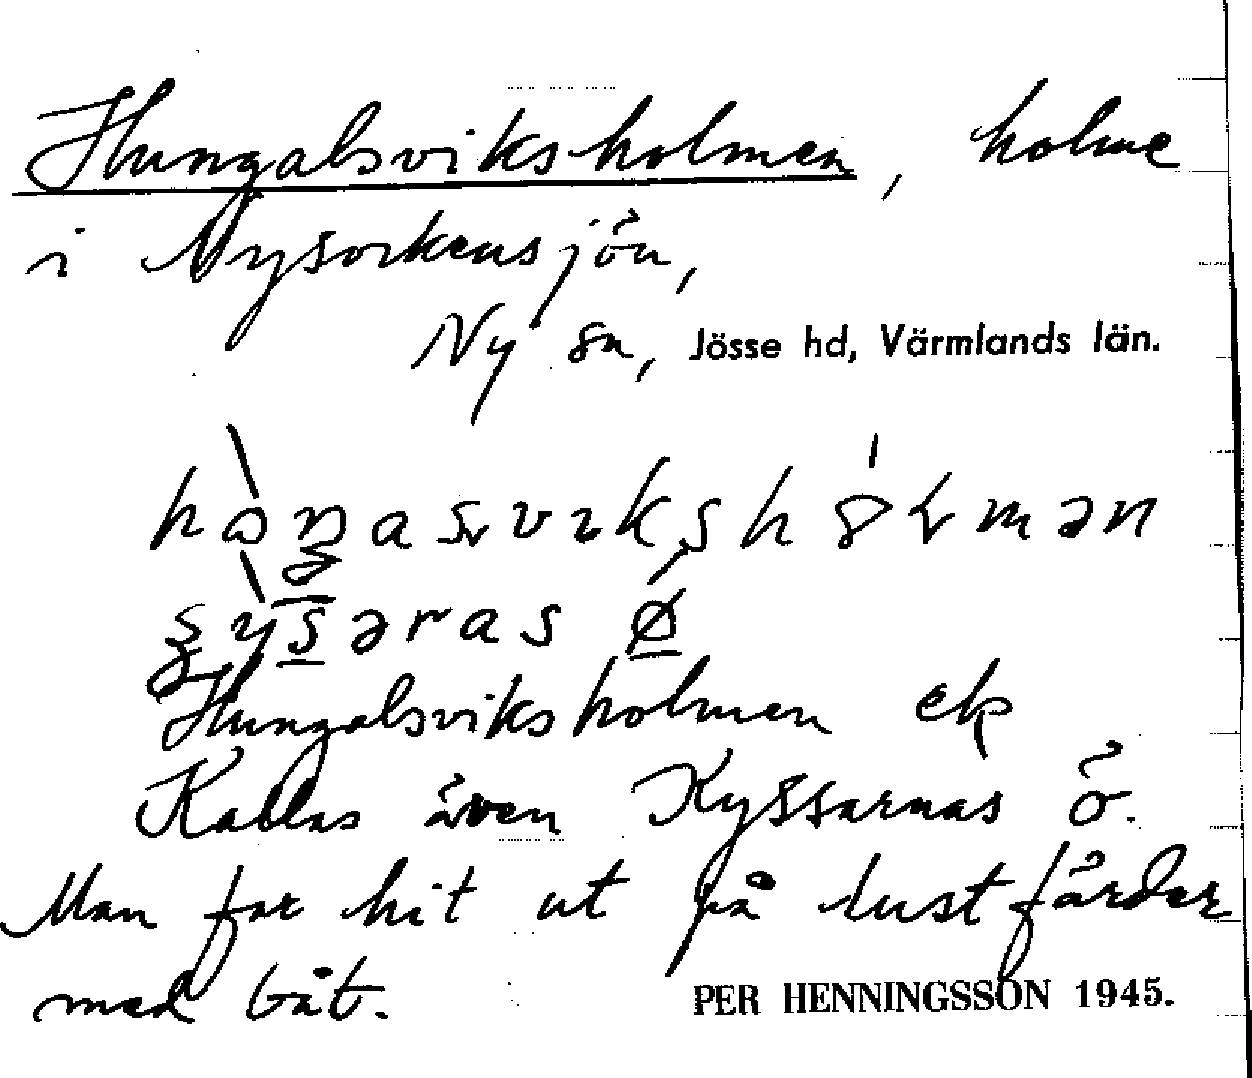 Hungalsviksholmen, holme
i Nysockensjön,
Ny sn, Jösse hd, Värmlands län.
Hungalsviksholmen ek
Kallas även Kyssarnas ö.
Man far hit ut på lustfärder
med båt.
PER HENNINGSSON 1945.